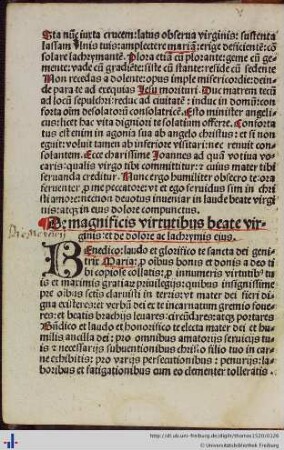 Sta nūc iuxta crucem: latus obserua virginis: sustenta
lassam vlnis tuis: amplectere mariā: erige deficientē: cō
solare lachrymantē. Plora etiā cū plorante: geme cū ge-
mente: vade cū gradiēte: siste cū stante: reside cū sedente
Non recedas a dolente: opus imple misericordie: dein-
de para te ad exequias Iesu morituri. Duc matrem tecū
ad locū sepulchri: reduc ad ciuitatē: induc in domū: con-
forta oīm desolatorū consolatricē. Esto minister angeli-
cus: het p̄stita dignitori tē solatium offerte. Conforta-
tus est enim in agonia sua ab angelo christus: et si non
eguit: voluit tamen ab inferiore visitari: nec renuit con-
solantem. Ecce charissime Joannes ad quā votiua vo-
caris: qualis virgo tibi committitur: et cuius mater tibi
seruanda creditur. Nunc ergo humiliter obsecro te: ora
seruenter p me peccatore: vt et ego seruidus sim in chri
sti amore: necnon deuotus inueniar in laude beate vir
ginis: atq̄ in eius dolore compunctus.
De magnificis virtutibus beate vir-
ginis et de dolore ac lachrymis eius.
BEnedico: laudo et glorifico te sancta dei geni-
trix Maria: p oibus bonis et donis a deo ti
bi copiose collatis: p innumeris virtutibꝰ tu
is et maximis gratiaꝝ priuilegijs: quibus insignissime
pre oibus sctis claruisti in terris: vt mater dei fieri di-
gna existeres: et verbū dei ex te incarnatum gremio foue
res: et beatis brachijs leuares: circūdares: atq̄ portares
Bndico et laudo et honorifico te electa mater dei et hu-
milis ancilla dei: pro omnibus amatorijs seruicijs tuis
et necessarijs subuentionibus christo filio tuo in car-
ne exhibitis: pro varijs persecutionibus: penurijs: la-
boribus et fatigationibus cum eo clementer tolleratis.
http://dl.ub.uni-freiburg.de/diglit/thomas1520/0126
© Universitätsbibliothek Freiburg